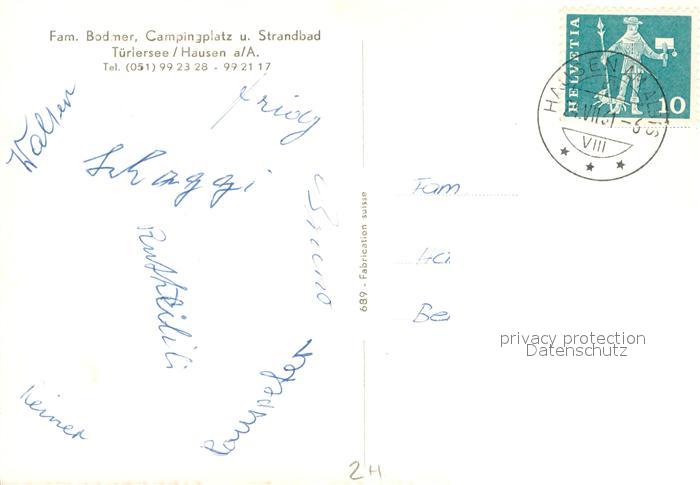 Fam. Bodmer, Campingplatz u. Strandbad
Türlersee / Hausen a/A.
Tel. (051) 99 23 28 - 99 21 17
HELVETIA
10
HAUSEN
VIII
Walter
Fridy
Schaggi
Bruno
Reiner
689 - Fabrication suisse
Fam
Be
privacy protection
Datenschutz
2H